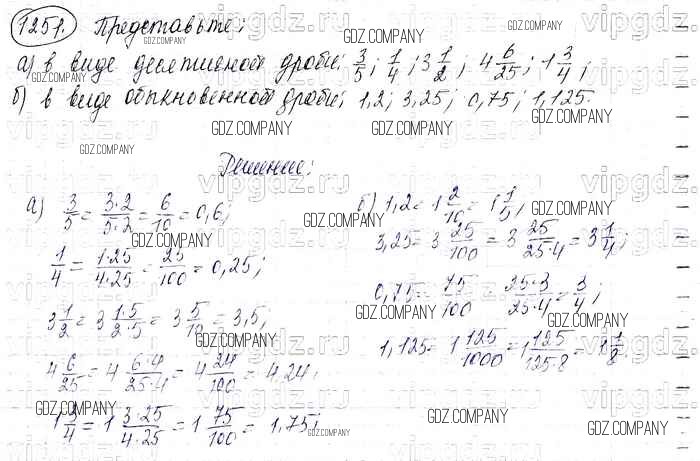 1251. Представьте:
а) в виде десятичной дроби: 3/5; 1/4; 3 1/2; 4 6/25; 1 3/4;
б) в виде обыкновенной дроби; 1,2; 3,25; 0,75; 1,125.
Решение:
а) 3/5 = 3·2/5·2 = 6/10 = 0,6;
1/4 = 1·25/4·25 = 25/100 = 0,25;
3 1/2 = 3 1·5/2·5 = 3 5/10 = 3,5;
4 6/25 = 4 6·4/25·4 = 4 24/100 = 4,24;
1 3/4 = 1 3·25/4·25 = 1 75/100 = 1,75;
б) 1,2 = 1 2/10 = 1 1/5;
3,25 = 3 25/100 = 3 25/25·4 = 3 1/4;
0,75 = 75/100 = 25·3/25·4 = 3/4;
1,125 = 1 125/1000 = 1 125/125·8 = 1 1/8.
GDZ.COMPANY
vipgdz.ru